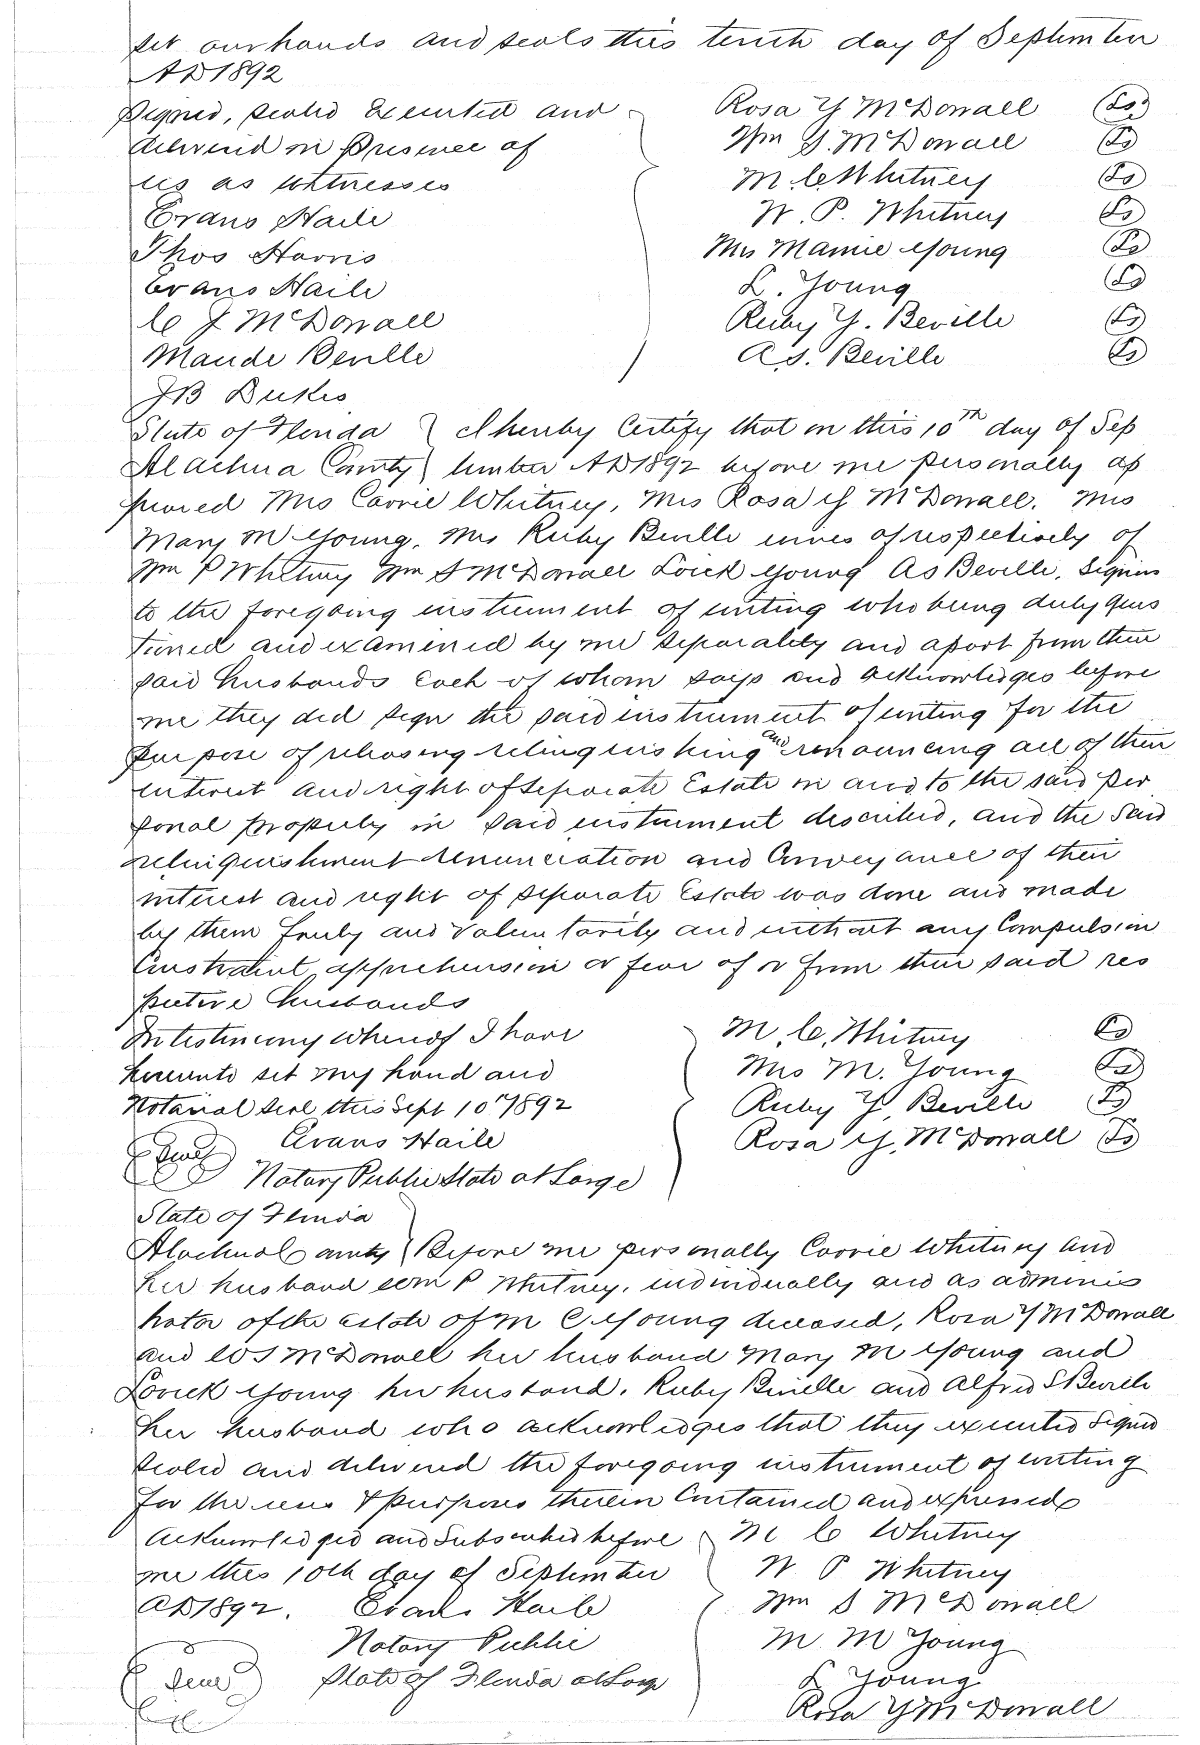 set our hands and seals this tenth day of September
AD 1892
Signed, sealed Executed and
delivered in Presence of
us as witnesses
Evans Haile
Thos Harris
Evans Haile
C J McDonall
Maude Beville
JB Dukes
Rosa Y McDonall (Ls)
Wm S. McDonall (Ls)
M. C. Whitney (Ls)
W. P. Whitney (Ls)
Mrs Mamie Young (Ls)
L. Young (Ls)
Ruby Y. Beville (Ls)
A.S. Beville (Ls)
State of Florida } I hereby Certify that on this 10th day of Sep
Alachua County } tember AD1892 before me personally ap
peared Mrs Carrie Whitney, Mrs Rosa Y McDonall, Mrs
Mary M Young, Mrs Ruby Beville wives of respectively of
Wm P Whitney Wm S McDonall Lorick Young AS Beville, Signers
to the foregoing instrument of writing who being duly ques
tioned and examined by me separately and apart from their
said husbands Each of whom says and acknowledges before
me they did sign the said instrument of writing for the
purpose of releasing relinquishing and renouncing all of their
interest and right of separate Estate in and to the said per
sonal property in said instrument described, and the said
relinquishment renunciation and Conveyance of their
interest and right of separate Estate was done and made
by them freely and voluntarily and without any Compulsion
Constraint, apprehension or fear of or from their said res
pective husbands
In testimony whereof I have
hereunto set my hand and
Notarial seal this Sept 10th 1892
Evans Haile
Seal Notary Public State at Large
M. C. Whitney (Ls)
Mrs M. Young (Ls)
Ruby Y. Beville (Ls)
Rosa Y. McDonall (Ls)
State of Florida
Alachua County } Before me personally Carrie Whitney and
her husband Wm P Whitney, individually and as adminis
trator of the estate of M C Young deceased, Rosa Y McDonall
and W S McDonall her husband Mary M Young and
Lorick Young her husband, Ruby Beville and Alfred S Beville
her husband who acknowledges that they executed signed
sealed and delivered the foregoing instrument of writing
for the uses & purposes therein Contained and expressed
Acknowledged and Subscribed before
me this 10th day of September
AD1892. Evans Haile
Notary Public
Seal State of Florida at Large
M C Whitney
W P Whitney
Wm S McDonall
M M Young
L Young
Rosa Y McDonall